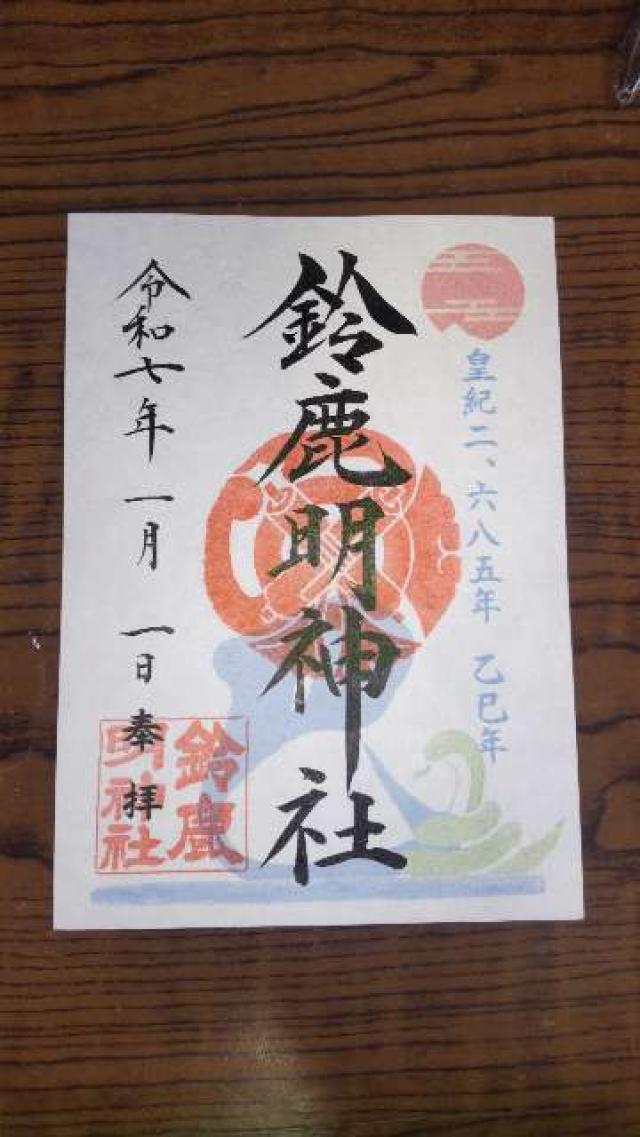 皇紀二、六八五年 乙巳年
鈴鹿明神社
令和七年一月一日奉拝
鈴鹿
明神社